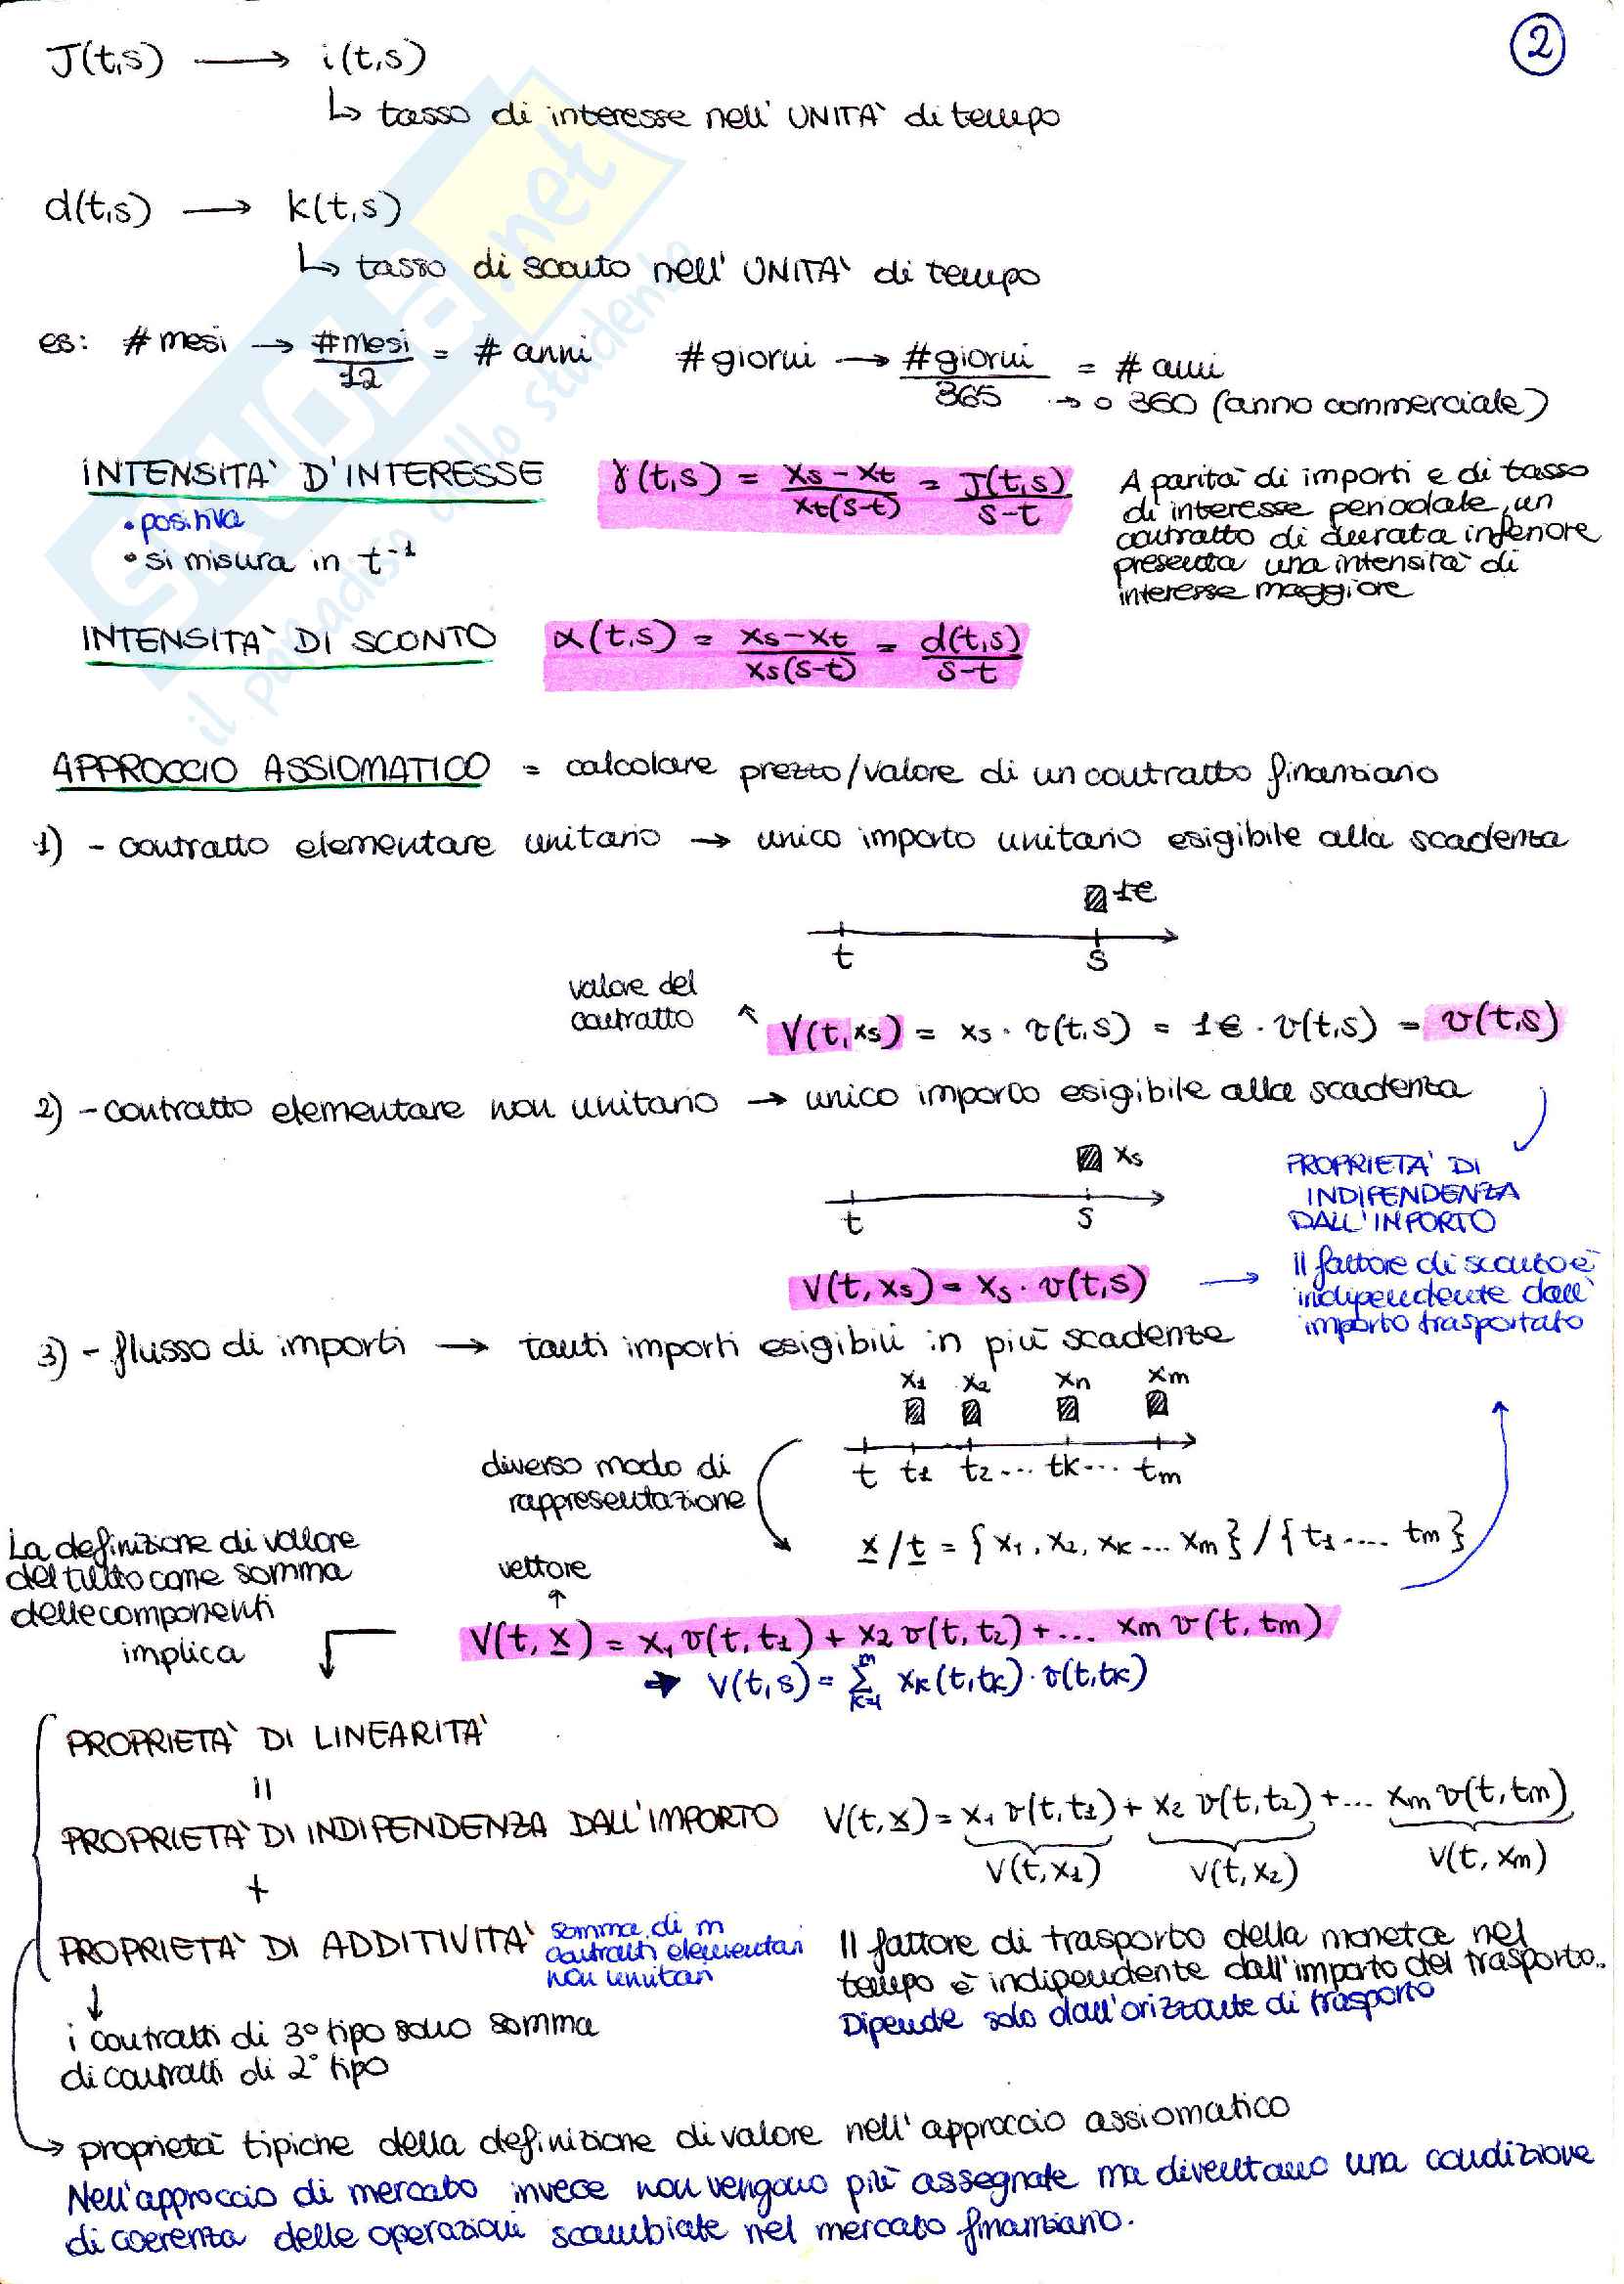 2
J(t,s) → i(t,s)
↳ tasso di interesse nell' UNITÀ di tempo
d(t,s) → k(t,s)
↳ tasso di sconto nell' UNITÀ di tempo
es: # mesi → #mesi/12 = # anni   # giorni → #giorni/365 = # anni
→ o 360 (anno commerciale)
INTENSITÀ D'INTERESSE   γ(t,s) = xs - xt / xt(s-t) = J(t,s) / s-t
• positiva
• si misura in t⁻¹
A parità di importi e di tasso
di interesse periodale, un
contratto di durata inferiore
presenta una intensità di
interesse maggiore
INTENSITÀ DI SCONTO   α(t,s) = xs - xt / xs(s-t) = d(t,s) / s-t
APPROCCIO ASSIOMATICO = calcolare prezzo/valore di un contratto finanziario
1) - contratto elementare unitario → unico importo unitario esigibile alla scadenza
1€
t   s
valore del
contratto
V(t,xs) = xs · v(t,s) = 1€ · v(t,s) = v(t,s)
2) - contratto elementare non unitario → unico importo esigibile alla scadenza
xs
t   s
PROPRIETÀ DI
INDIPENDENZA
DALL'IMPORTO
V(t,xs) = xs · v(t,s) →
Il fattore di sconto è
indipendente dall'
importo trasportato
3) - flusso di importi → tanti importi esigibili in più scadenze
x1 x2 xn xm
t t1 t2 ... tk ... tm
diverso modo di
rappresentazione
x/t = {x1, x2, xk ... xm} / {t1 .... tm}
La definizione di valore
del tutto come somma
delle componenti
implica
vettore
V(t, x) = x1 v(t,t1) + x2 v(t,t2) + ... xm v(t,tm)
→ V(t,s) = Σ k=1 m xk(t,tk) · v(t,tk)
PROPRIETÀ DI LINEARITÀ
=
PROPRIETÀ DI INDIPENDENZA DALL'IMPORTO
+
PROPRIETÀ DI ADDITIVITÀ
somma di m
contratti elementari
non unitari
V(t,x) = x1 v(t,t1) + x2 v(t,t2) + ... xm v(t,tm)
V(t,x1)   V(t,x2)   V(t,xm)
Il fattore di trasporto della moneta nel
tempo è indipendente dall'importo del trasporto..
Dipende solo dall'orizzonte di trasporto
↓
i contratti di 3° tipo sono somma
di contratti di 2° tipo
→ proprietà tipiche della definizione di valore nell'approccio assiomatico
Nell'approccio di mercato invece non vengono più assegnate ma diventano una condizione
di coerenza delle operazioni scambiate nel mercato finanziario.
SKUOLA.net
il paradiso dello studente